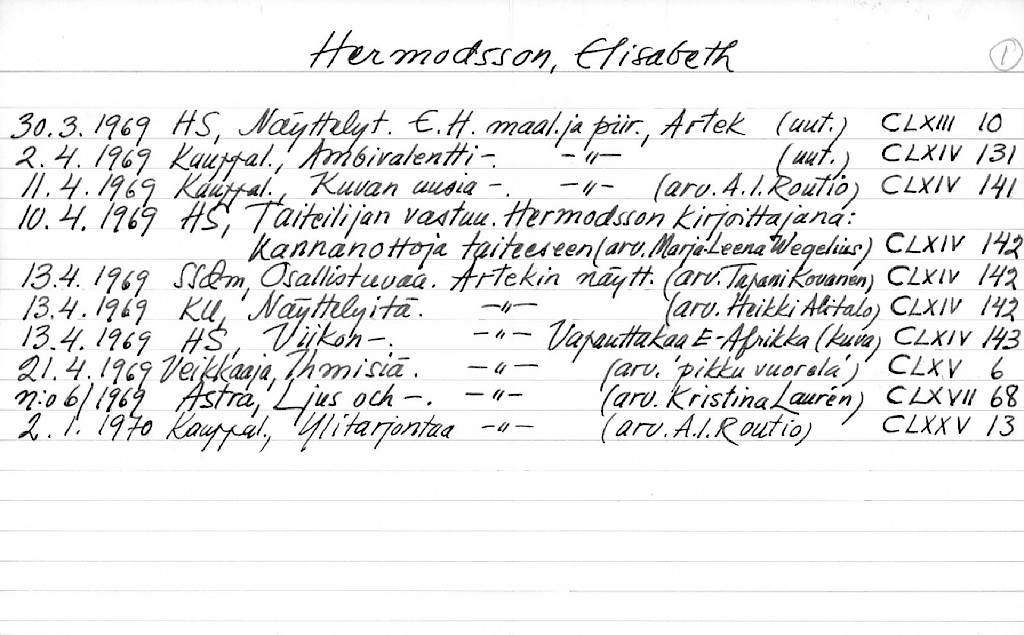 Hermodsson, Elisabeth 1
30.3.1969 HS, Näyttelyt. E.H. maal. ja piir., Artek (uut.) CLXIII 10
2.4.1969 Kauppal., Ambivalentti -. -"- (uut.) CLXIV 131
11.4.1969 Kauppal., Kuvan uusia -. -"- (arv. A.I. Routio) CLXIV 141
10.4.1969 HS, Taiteilijan vastuu. Hermodsson kirjoittajana:
kannanottoja taiteeseen (arv. Marja-Leena Wegelius) CLXIV 142
13.4.1969 SSdm, Osallistuvaa. Artekin näytt. (arv. Tapani Kovanen) CLXIV 142
13.4.1969 KU, Näyttelyitä. -"- (arv. Heikki Alitalo) CLXIV 142
13.4.1969 HS, Viikon -. -"- Vapauttakaa E-Afrikka (kuva) CLXIV 143
21.4.1969 Veikkaaja, Ihmisiä. -"- (arv. 'pikku vuorela') CLXV 6
n:o 6/1969 Astra, Ljus och -. -"- (arv. Kristina Laurén) CLXVII 68
2.1.1970 Kauppal., Ylitarjontaa -"- (arv. A.I. Routio) CLXXV 13